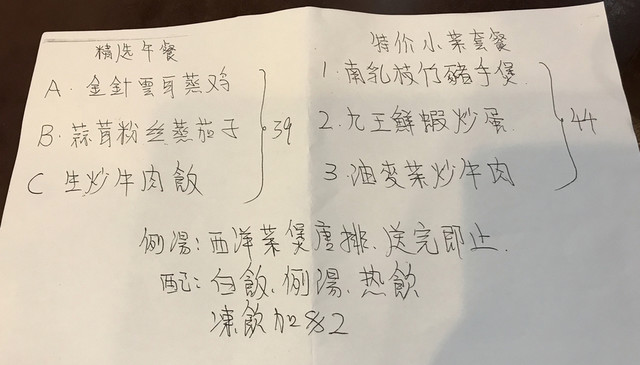 精选午餐
A. 金針雲耳蒸鸡
B. 蒜茸粉丝蒸茄子
C 生炒牛肉飯
39
特价小菜套餐
1. 南乳枝竹豬手煲
2. 九王鮮蝦炒蛋
3. 油麦菜炒牛肉
44
例湯: 西洋菜煲唐排、送完即止.
配: 白飯、例湯、热飲
凍飲加$2